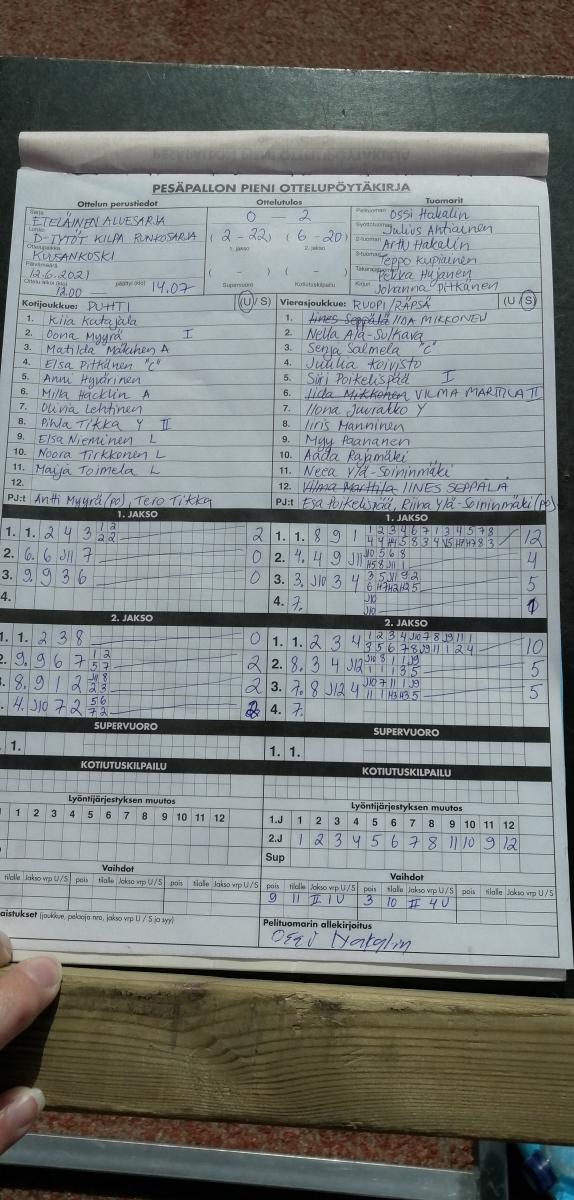 PESÄPALLON PIENI OTTELUPÖYTÄKIRJA
Ottelun perustiedot
Ottelutulos
Tuomarit
Sarja
ETELÄINEN ALUESARJA
Lohko
D-TYTÖT KILPA RUNKOSARJA
Ottelupaikka
KUUSANKOSKI
Päivämäärä
12.6.2021
Ottelu alkoi (klo) 12.00 päättyi (klo) 14.07
0 - 2
(2 - 22) (6 - 20)
1. jakso 2. jakso
( - ) ( - )
Supervuoro Kotiutuskilpailu
Pelituomari Ossi Hakalin
Syöttötuomari Julius Ahtiainen
2-tuomari Arthi Hakalin
3-tuomari Teppo Kupiainen
Takarajatuomari Pekka Hyjänen
Kirjuri Johanna Pitkänen
Kotijoukkue: PUHTI (U / S)
1. Kiia Kutajala
2. Oona Myyrä I
3. Matilda Mäkinen A
4. Elsa Pitkänen "C"
5. Anni Hyvärinen
6. Milla Häcklin A
7. Olivia Lehtinen
8. Pihla Tikka Y II
9. Elsa Nieminen L
10. Noora Tirkkonen L
11. Maija Toimela L
12.
PJ:t Antti Myyrä (po), Tero Tikka
Vierasjoukkue: RUOPI / RÄPSÄ (U / S)
1. Iines Seppälä IIDA MIKKONEN
2. Nella Ala-Sulkava
3. Senja Salmela "C"
4. Juulia Koivisto
5. Siiri Poikelispää I
6. Iida Mikkonen VILMA MARTTILA II
7. Ilona Juurakko Y
8. Iiris Manninen
9. Myy Paananen
10. Aada Rajamäki
11. Neea Ylä-Soininmäki
12. Vilma Marttila IINES SEPPÄLÄ
PJ:t Esa Poikelispää, Riina Ylä-Soininmäki (po)
1. JAKSO
1. 1. 2 4 3 1 2 2
2 2
2. 6. 6 J11 7 0
3. 9. 9 3 6 0
4.
1. JAKSO
1. 1. 8 9 1 1 2 3 4 6 7 1 3 4 5 7 8 12
2. 4. 4 9 J11 J10 5 6 8 4
3. 3. J10 3 4 3 5 J11 9 2 5
4. 7. J10 1
J10
2. JAKSO
1. 1. 2 3 8 0
2. 9. 9 6 7 1 2 2
5 7
3. 8. 9 1 2 J11 8 2
2 3
4. J10 7 2 5 6 2
7 2
2. JAKSO
1. 1. 2 3 4 1 2 3 4 J10 7 8 J9 11 1 10
3 5 6 7 8 J9 11 1 2 4
2. 8. 3 4 J12 J10 8 1 J9 5
1 1 1 3 5
3. 7. 8 J12 4 J10 7 11 1 J9 5
4. 7.
SUPERVUORO
1. 1.
SUPERVUORO
1. 1.
KOTIUTUSKILPAILU
KOTIUTUSKILPAILU
Lyöntijärjestyksen muutos
1 2 3 4 5 6 7 8 9 10 11 12
Lyöntijärjestyksen muutos
1.J 1 2 3 4 5 6 7 8 9 10 11 12
2.J 1 2 3 4 5 6 7 8 11 10 9 12
Sup
Vaihdot
tilalle Jakso vrp U / S pois tilalle Jakso vrp U / S pois tilalle Jakso vrp U / S
Vaihdot
pois tilalle Jakso vrp U / S pois tilalle Jakso vrp U / S pois tilalle Jakso vrp U / S
9 11 II 1 U 3 10 II 4 U
aistukset (joukkue, pelaaja nro, jakso, vrp U / S ja syy)
Pelituomarin allekirjoitus
Ossi Hakalin